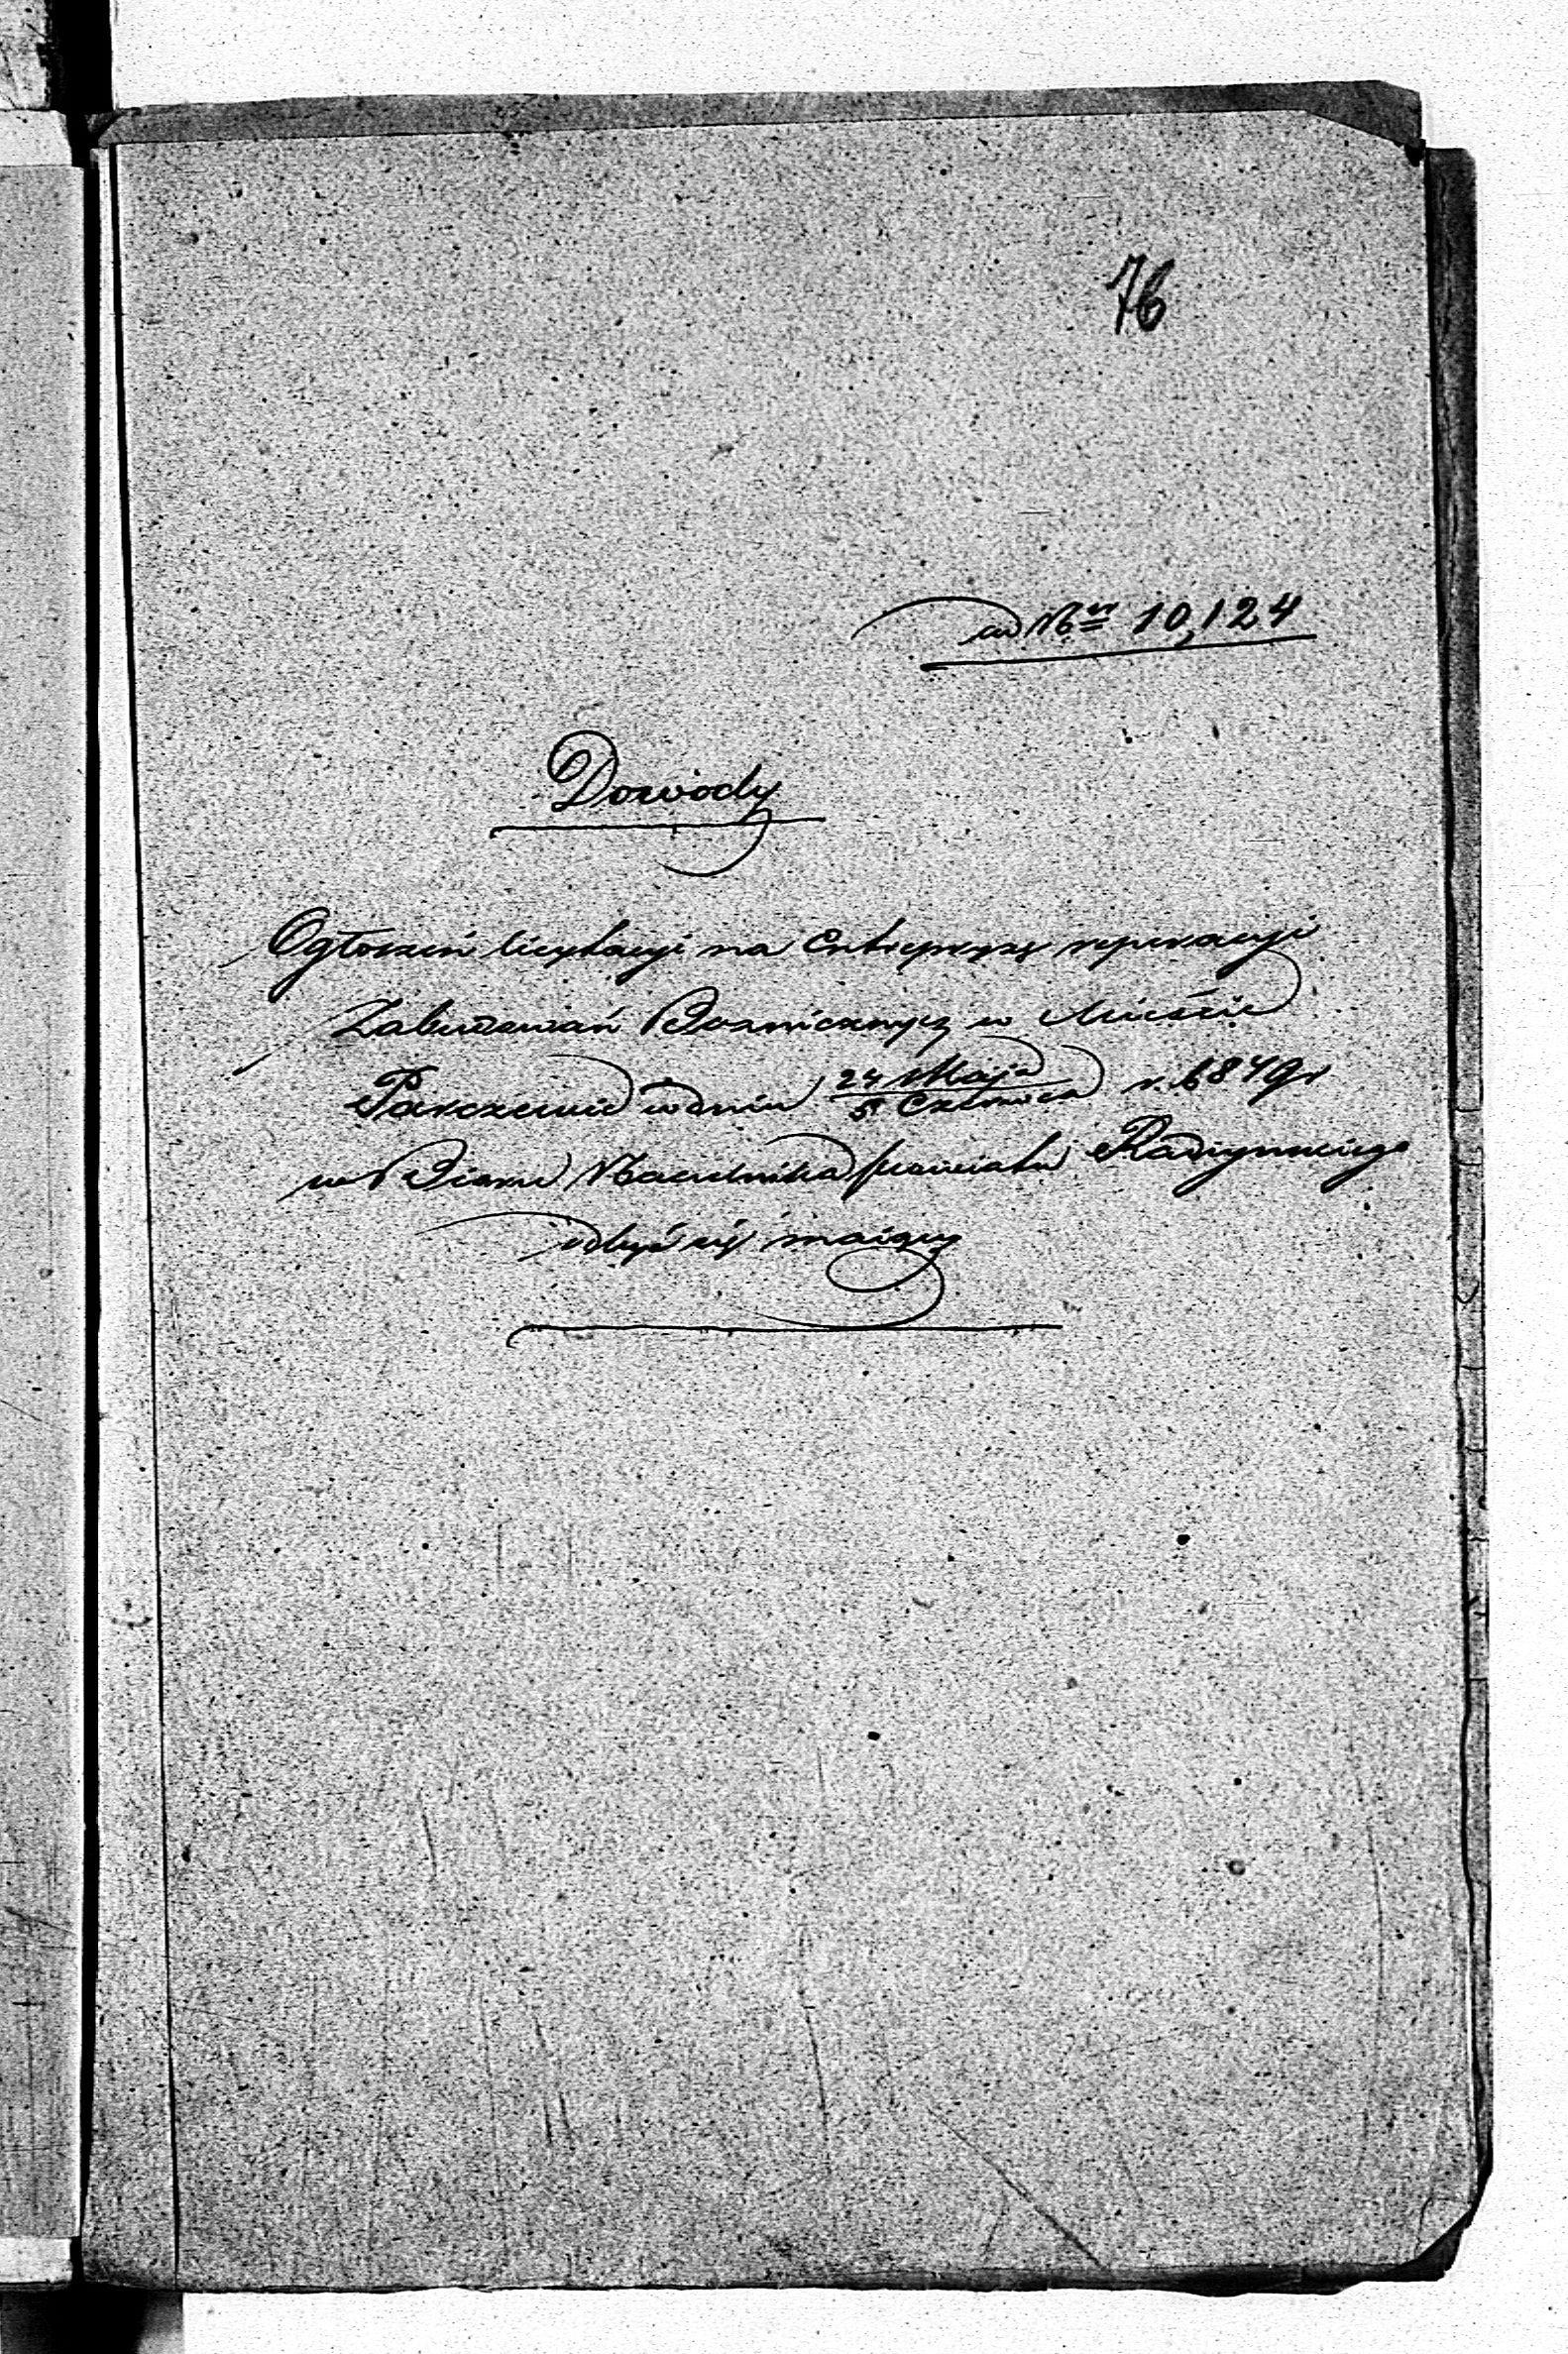 76
ad Nrm 10,124
Dowody
Ogłoszeń licytacyi na Entrepryzę reperacyi
Zabudowań Boznicznych w Mieście
Parczewie w dniu 24 Maja / 5 Czerwca r. b. 1849 r
w Biurze Naczelnika powiatu Radzyńskiego
odbyć się maiącey